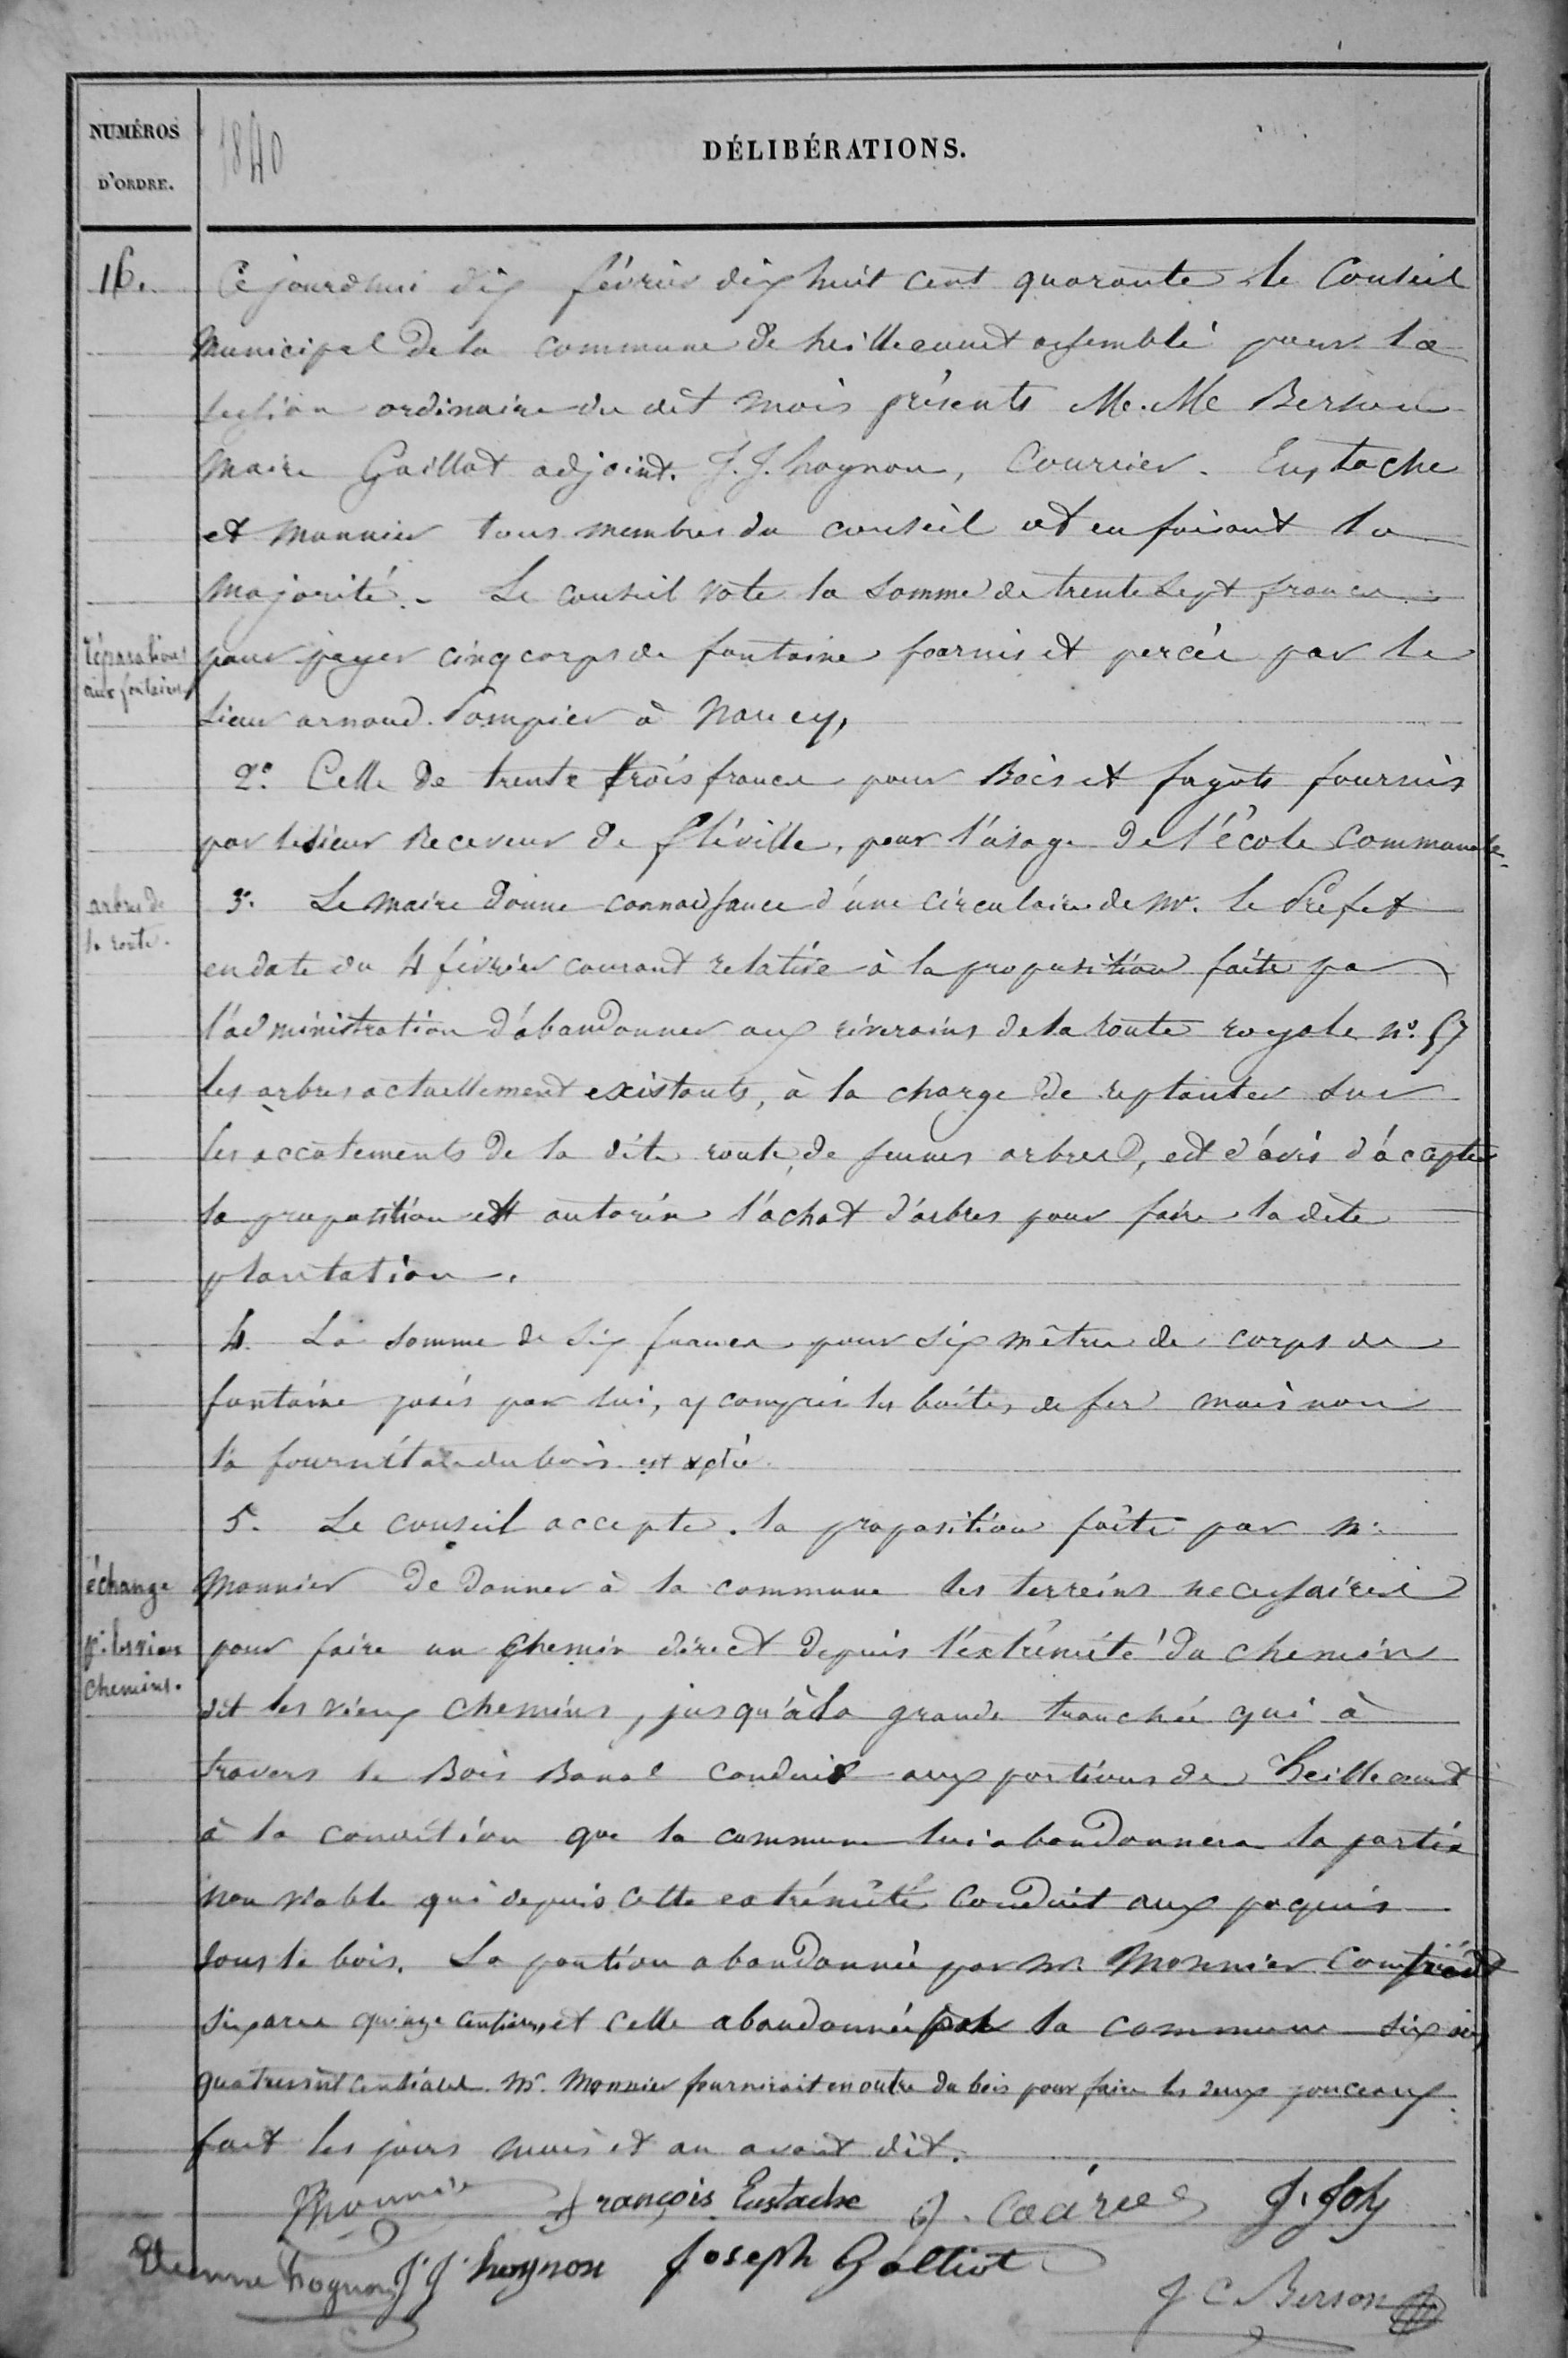 NUMÉROS
D'ORDRE.
1840
DÉLIBÉRATIONS.
16.
Ce jourdhui dix février dix huit cent quarante le Conseil
Municipal de la commune de heillecourt assemblé pour la
session ordinaire du dit mois présents M.M. Berson
maire Gaillot adjoint. J.J. hognon, Courrier. Eustache
et Monnier tous membres du conseil et en faisant la
majorité. - Le conseil vote la somme de trente sept francs
réparations
aux fontaines
pour payer cinq corps de fontaine fournis et percés par le
sieur arnoud. Pompier à Nancy,
2º. Celle de trente trois francs pour Bois et fagots fournis
par le sieur Receveur de fléville, pour l'usage de l'école communale.
arbres de
la route.
3º. Le maire donne connaissance d'une circulaire de Mr. le Prefet
en date du 4 février courant relative à la proposition faite par
l'administration d'abandonner aux riverains de la route royale nº. 57
les arbres actuellement existants, à la charge de replanter sur
les accotements de la dite route, de jeunes arbres, est d'avis d'accepter
la proposition et autorise l'achat d'arbres pour faire la dite
plantation.
4. La somme de six francs pour six mêtres de corps de
fontaine posés par lui, y compris les boîtes de fer mais non
la fourniture du bois est
5. Le conseil accepte. la proposition faite par Mr.
échange
pr. les vieux
chemins.
Monnier de donner à la commune les terreins necessaires
pour faire un chemin direct depuis l'extrémité du chemin
dit les vieux chemins, jusqu'à la grande tranchée qui à
travers le Bois Banal conduit aux portions de heillecourt
à la condition que la commune lui abandonnera la partie
non viable qui depuis cette extrémité conduit aux paquis
sous le bois. La portion abandonnée par Mr. Monnier comprend
six ares quinze centiares, et celle abandonnée par la commune six ares
quatrevint centiares. Mr. Monnier fournirait en outre du bois pour faire les deux ponceaux.
fait les jours mois et an avant dit.
Monnier François Eustache J. Joly
Etienne hognon J.J. hognon Joseph Galliot
J C Berson